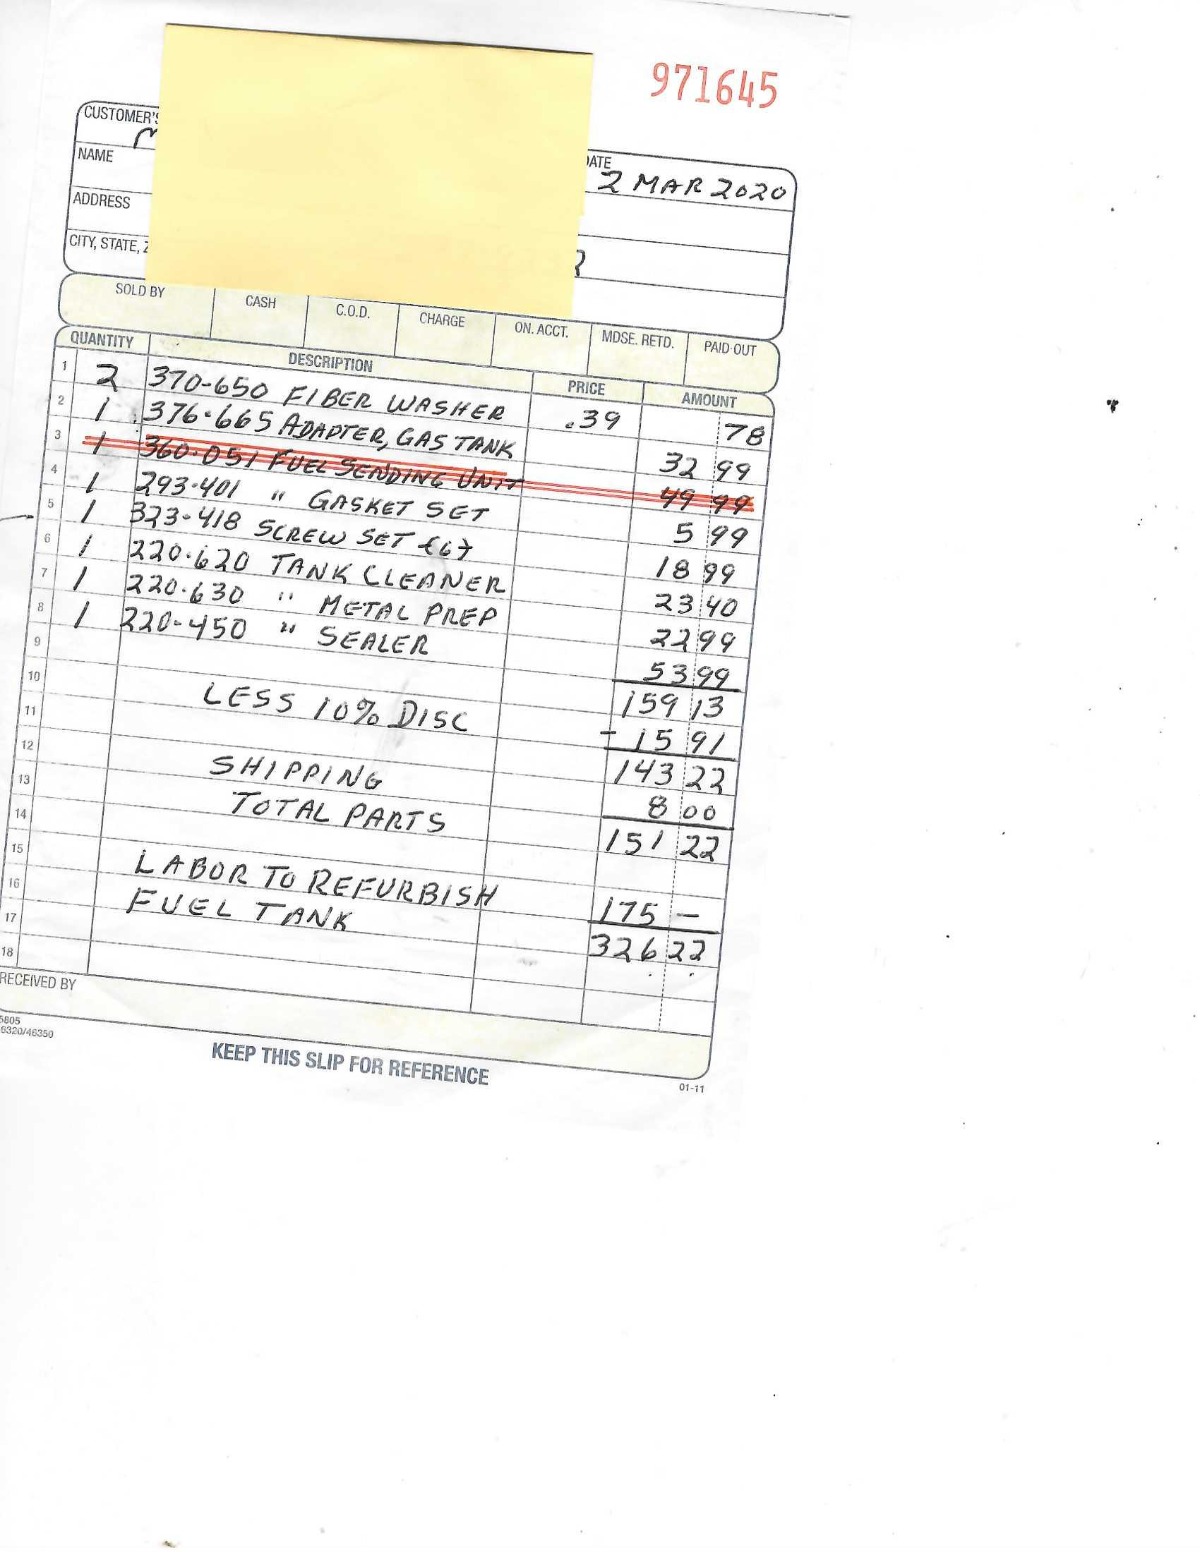 971645
CUSTOMER'S
NAME
DATE 2 MAR 2020
ADDRESS
CITY, STATE, Z
SOLD BY CASH C.O.D. CHARGE ON. ACCT. MDSE. RETD. PAID OUT
QUANTITY DESCRIPTION PRICE AMOUNT
1 2 370-650 FIBER WASHER .39 78
2 1 376-665 ADAPTER, GAS TANK 32 99
3 1 360-051 FUEL SENDING UNIT 49 99
4 1 293-401 " GASKET SET 5 99
5 1 323-418 SCREW SET (6) 18 99
6 1 220-620 TANK CLEANER 23 40
7 1 220-630 " METAL PREP 22 99
8 1 220-450 " SEALER 53 99
9 159 13
10 LESS 10% DISC - 15 91
11 143 22
12 SHIPPING 8 00
13 TOTAL PARTS 151 22
14
15 LABOR TO REFURBISH
16 FUEL TANK 175 —
17 326 22
18
RECEIVED BY
5805
6320/46350
KEEP THIS SLIP FOR REFERENCE
01-11